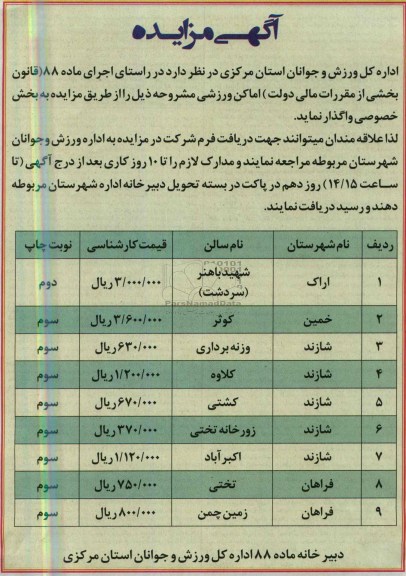 آگهی مزایده
اداره کل ورزش و جوانان استان مرکزی در نظر دارد در راستای اجرای ماده ۸۸(قانون
بخشی از مقررات مالی دولت) اماکن ورزشی مشروحه ذیل را از طریق مزایده به بخش
خصوصی واگذار نماید.
لذا علاقه مندان میتوانند جهت دریافت فرم شرکت در مزایده به اداره ورزش و جوانان
شهرستان مربوطه مراجعه نمایند و مدارک لازم را تا ۱۰ روز کاری بعد از درج آگهی (تا
ساعت ۱۴/۱۵) روز دهم در پاکت در بسته تحویل دبیرخانه اداره شهرستان مربوطه
دهند و رسید دریافت نمایند.
ردیف نام شهرستان نام سالن قیمت کارشناسی نوبت چاپ
۱ اراک شهید باهنر (سردشت) ۳/۰۰۰/۰۰۰ ریال دوم
۲ خمین کوثر ۳/۶۰۰/۰۰۰ ریال سوم
۳ شازند وزنه برداری ۶۳۰/۰۰۰ ریال سوم
۴ شازند کلاوه ۱/۲۰۰/۰۰۰ ریال سوم
۵ شازند کشتی ۶۷۰/۰۰۰ ریال سوم
۶ شازند زورخانه تختی ۳۷۰/۰۰۰ ریال سوم
۷ شازند اکبرآباد ۱/۱۲۰/۰۰۰ ریال سوم
۸ فراهان تختی ۷۵۰/۰۰۰ ریال سوم
۹ فراهان زمین چمن ۸۰۰/۰۰۰ ریال سوم
ParsNamadData
دبیرخانه ماده ۸۸ اداره کل ورزش و جوانان استان مرکزی